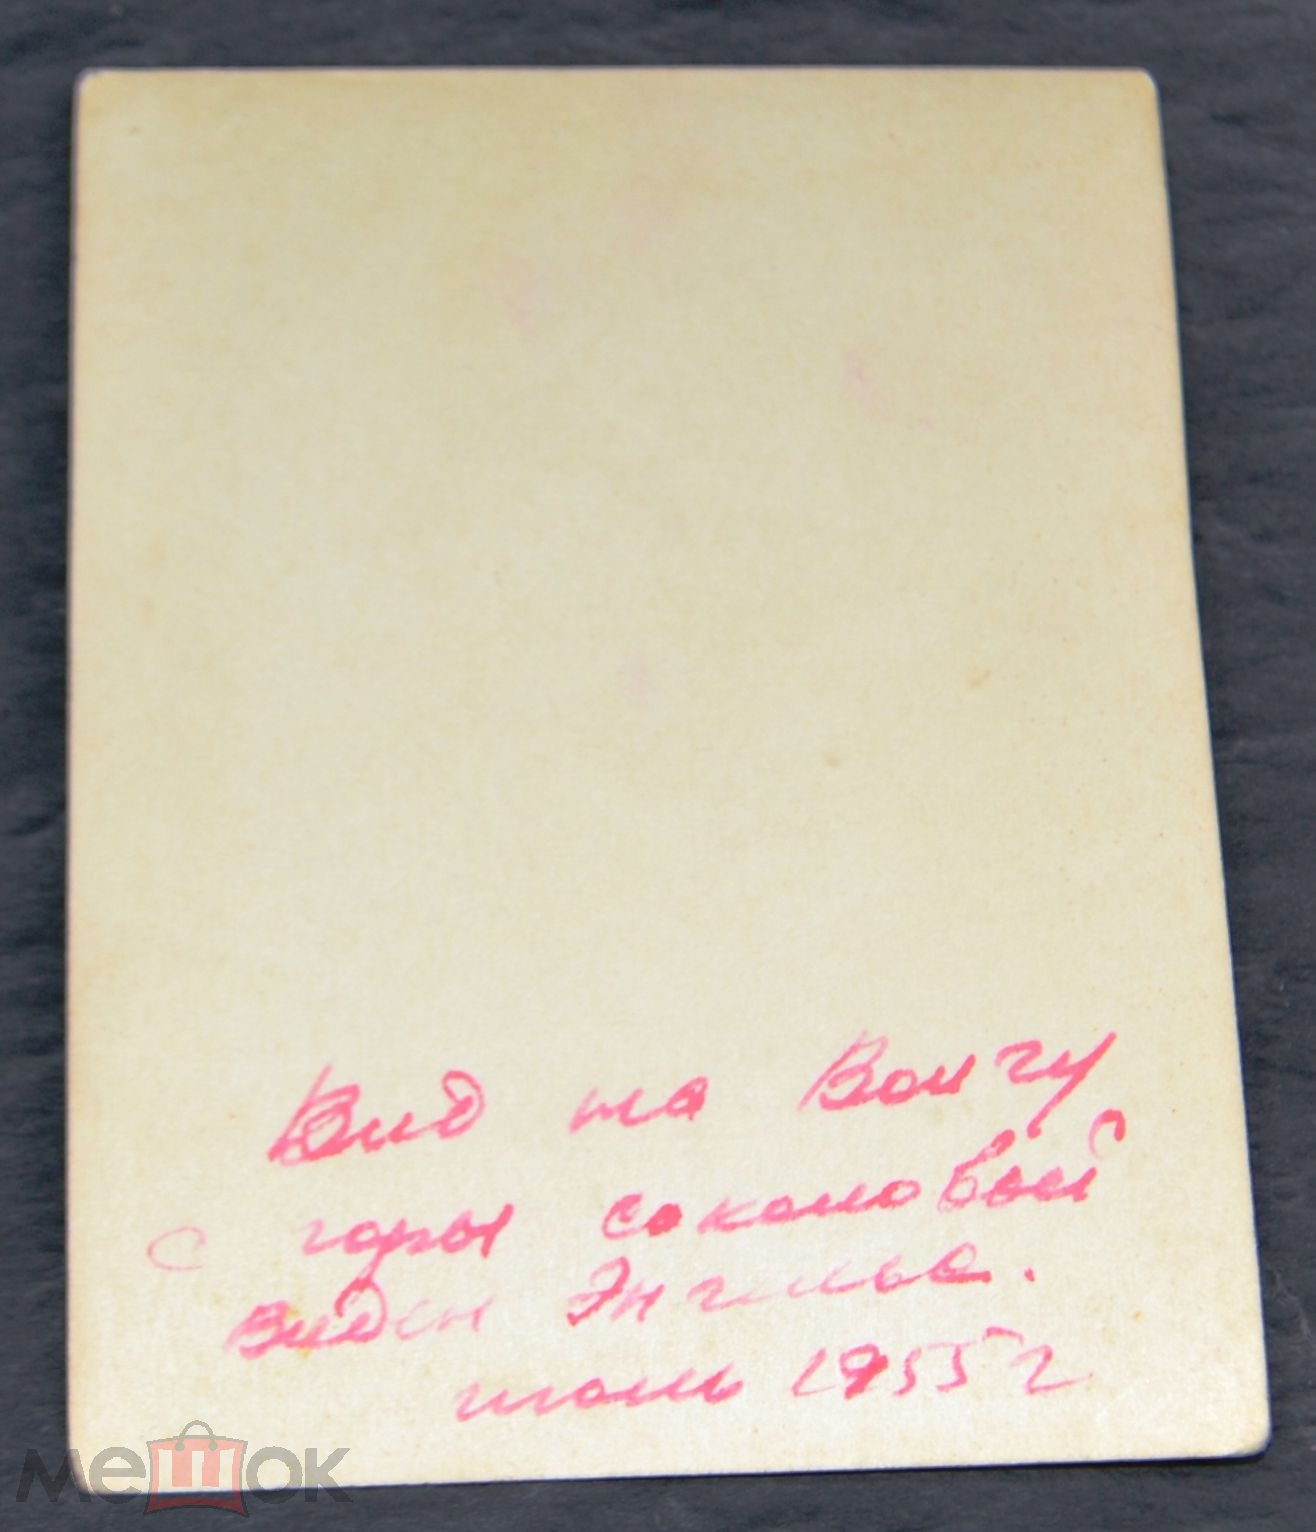 Вид на Волгу
с горы соколовый
виден Энгельс.
июль 1955 г
мешок